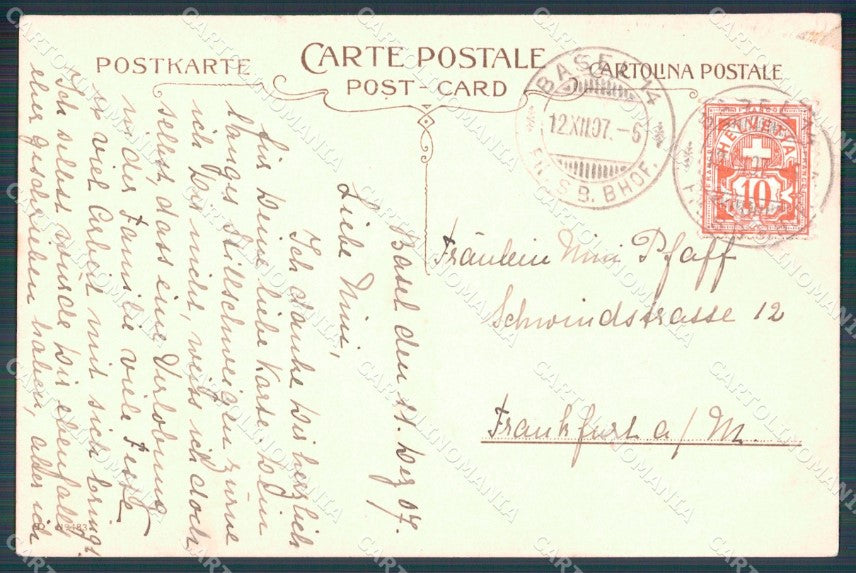 POSTKARTE
CARTE POSTALE
POST-CARD
CARTOLINA POSTALE
BASEL 14
12.XII.07.-6
S.B. BHOF.
HELVETIA
10
Fräulein Mini Pfaff
Schwindstrasse 12
Frankfurt a/M.
Basel den 11. Dez 07.
Liebe Mini,
Ich danke Dir herzlich
für Deine liebe Karte. Dein
langes Stillschweigen zürne
ich Dir nicht, weiss ich doch
selbst, dass eine Verlobung
in der Familie viele Feste
u. viel Arbeit mit sich bringt.
Ich selbst würde Dir ebenfalls
eher geschrieben haben, aber ich
CARTOLINOMANIA